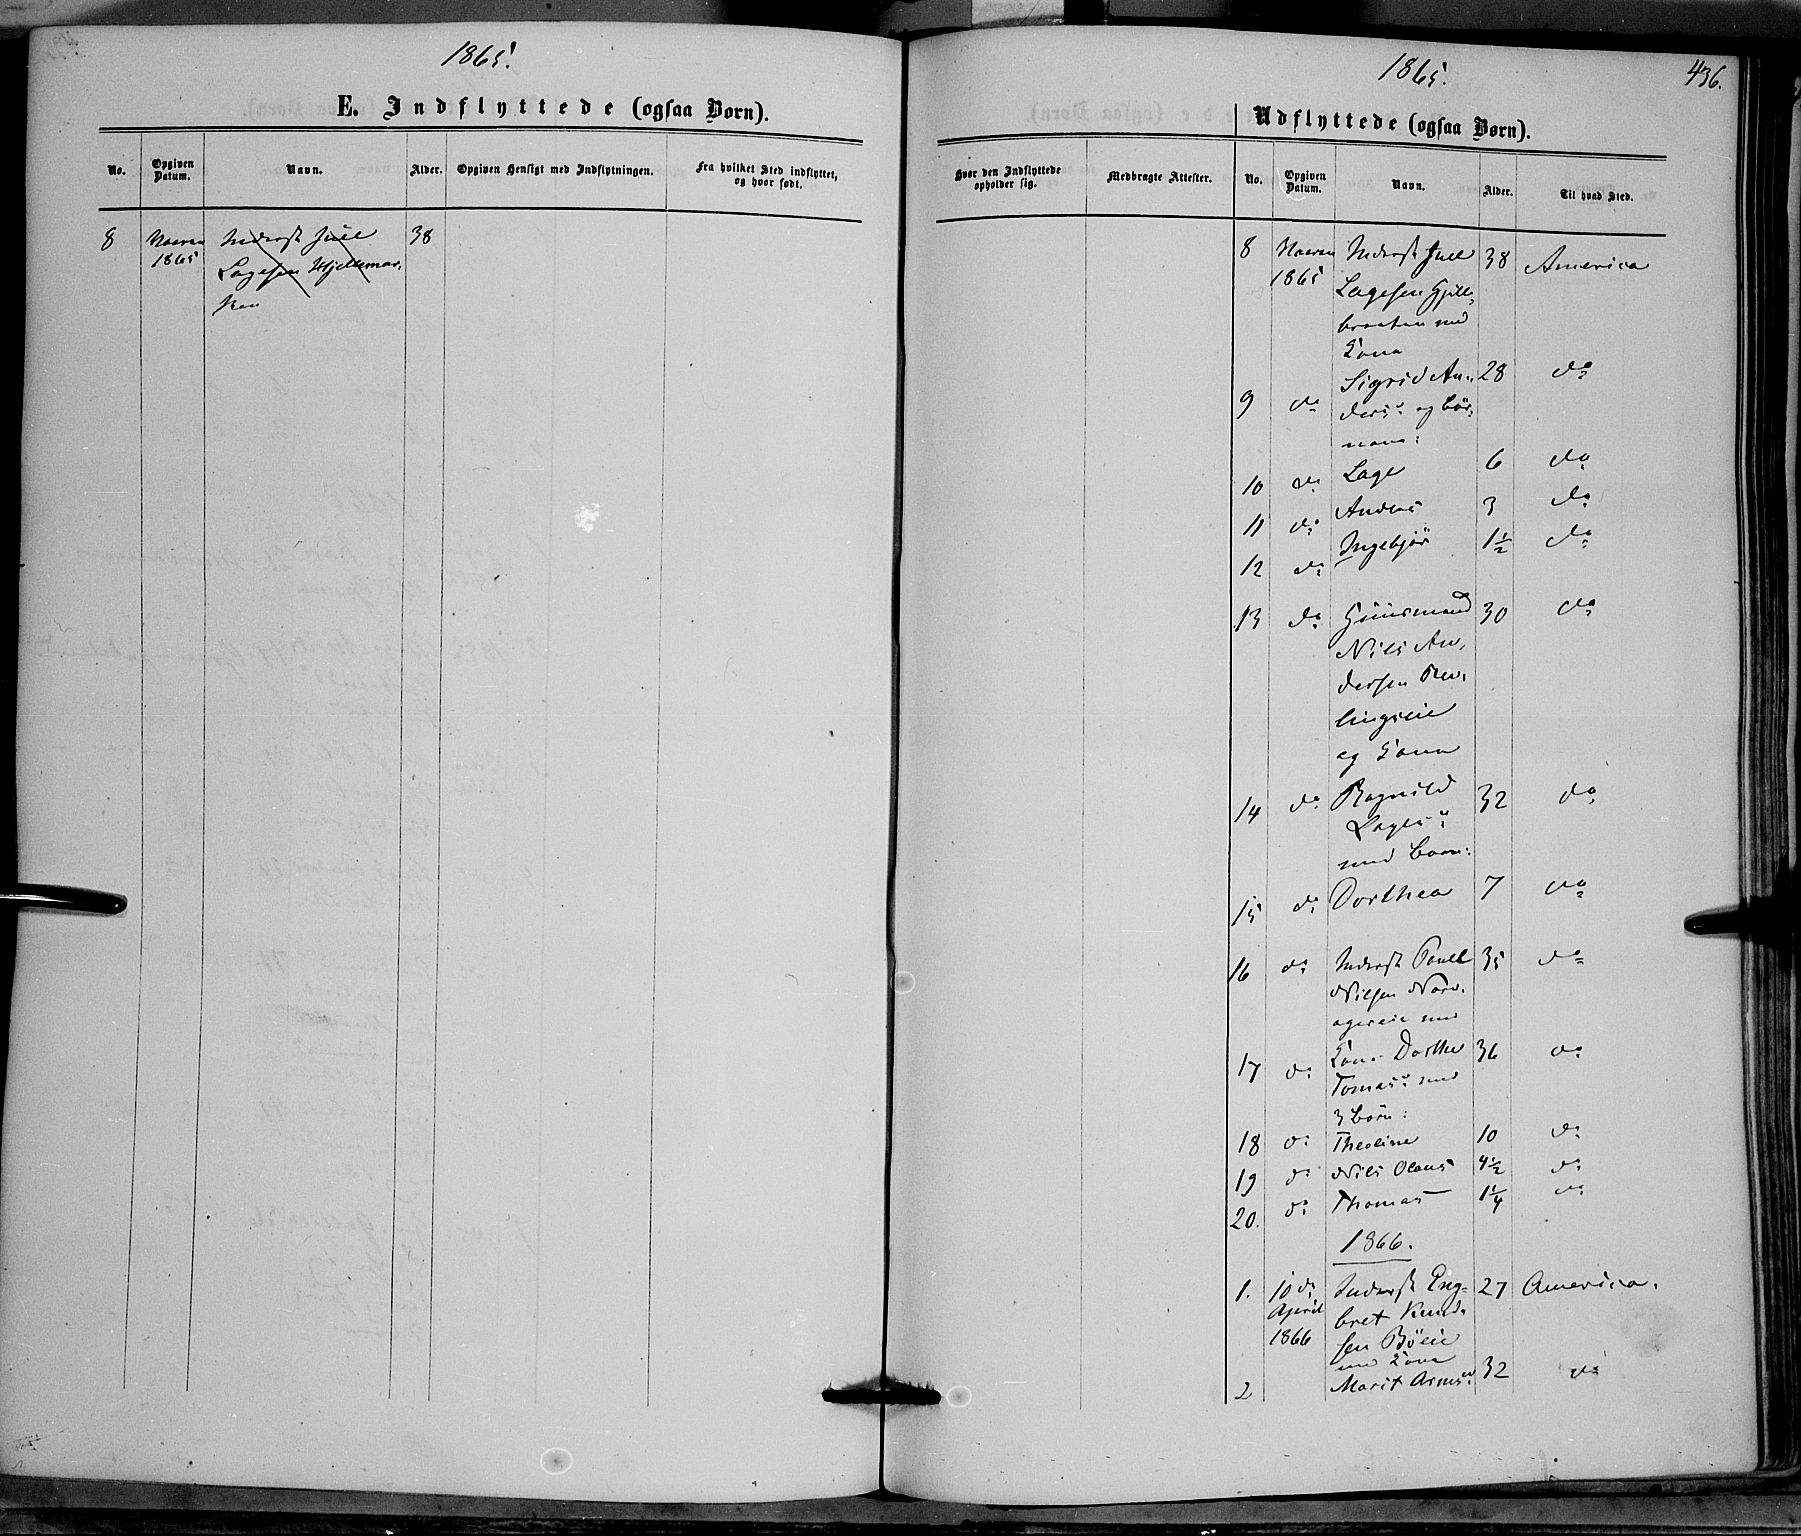 1865.
E. Indflyttede (ogsaa Børn).
No.
Opgiven Datum.
Navn.
Alder.
Opgiven Hensigt med Indflytningen.
Fra hvilket Sted indflyttet, og hvor født.
8 Vaaren Inderst Juel 38
1865 Lagesen
1865.
436.
Udflyttede (ogsaa Børn).
Hvor den Indflyttede opholder sig.
Medbragte Attester.
No.
Opgiven Datum.
Navn.
Alder.
Til hvad Sted.
8 Vaaren Inderst Juel 38 America
1865 Lagesen Gjille-
braaten med
Kona
9 do Sigrid An- 28 do
dersd. og Bør-
nene:
10 do Lage 6 do
11 do Anders 3 do
12 do Ingebjør 1½ do
13 do Huusmand 30 do
Nils An-
dersen
lingseie
og Kona
14 do Ragnild 32 do
Lagesd.
med Barn:
15 do Dorthea 7 do
16 do Inderst Paul 35 do
Nilsen
med
17 do Kone Dorthe 36 do
Tomasd. med
3 Børn:
18 do Theoline 10 do
19 do Nils Olaus 4½ do
20. do Thomas 1¼ do
1866.
1. 10de Inderst Eng- 27 America.
April bret Knud-
1866 sen Bøeie
med Kone
2 Marit Arnesd. 32 do